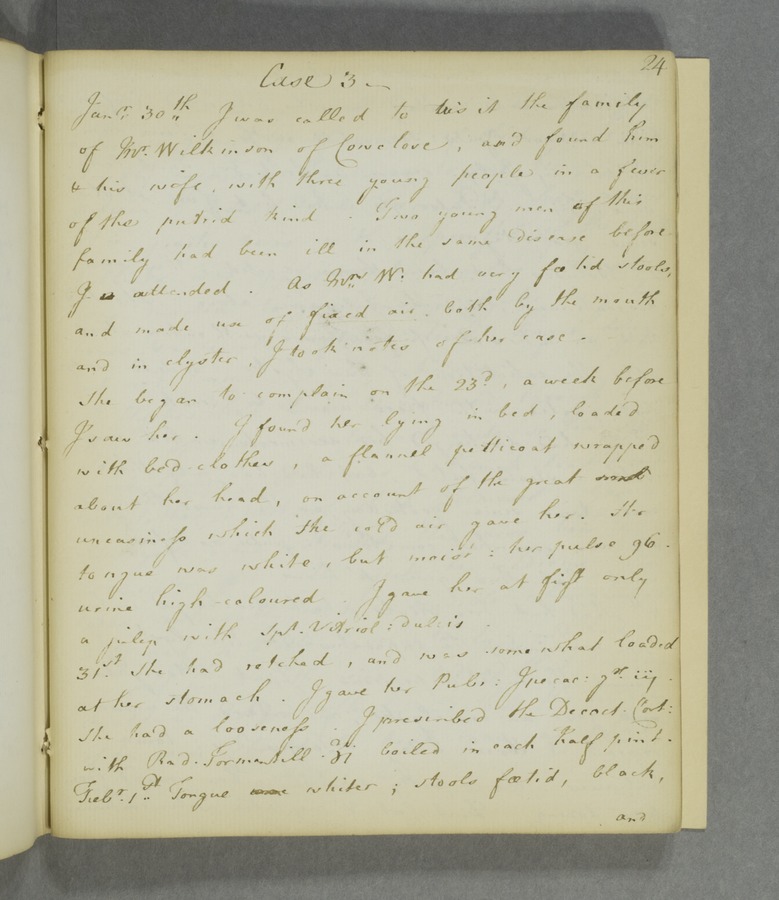 24
Case 3
Janry. 30th I was called to visit the family
of Mr. Wilkinson of Cowclose, and found him
& his wife, with three young people in a fever
of the putrid kind. Two young men of this
family had been ill in the same Disease before
I attended. As Mrs W. had very fœtid stools,
and made use of fixed air, both by the mouth
and in clyster, I took notes of her case.
She began to complain on the 23d, a week before
I saw her. I found her lying in bed, loaded
with bed-clothes, a flannel petticoat wrapped
about her head, on account of the great
uneasiness which the cold air gave her. Her
tongue was white, but moist: her pulse 96.
urine high-coloured. I gave her at first only
a julep with Spt. Vitriol: dulcis.
31st She had retched, and was somewhat loaded
at her stomach. I gave her Pulv: Ipecac: gr. iij.
She had a looseness. I prescribed the Decoct. Cort:
with Rad. Tormentill. ʒj boiled in each half pint.
Febr. 1st Tongue whiter; stools fœtid, black,
and